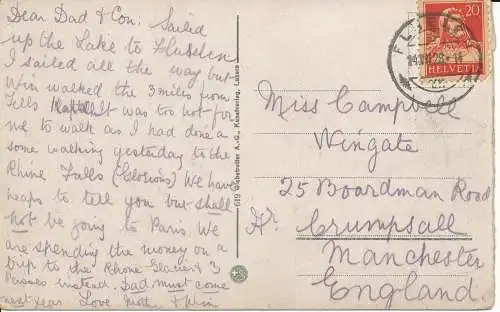 Dear Dad & Con. Sailed
up the Lake to Fluelen
I sailed all the way but
Win walked the 3 miles from
Tells it was too hot for
me to walk as I had done a
some walking yesterday to the
Rhine Falls (Glorious) We have
heaps to tell you but shall
not be going to Paris. We
are spending the money on a
trip to the Rhone Glacier & 3
Passes instead. Dad must come
next year. Love Mother & Win
619 Wehrli A.-G., Kunstverlag
20
HELVETIA
Miss Campbell
Wingate
25 Boardman Road
Nr. Crumpsall
Manchester
England